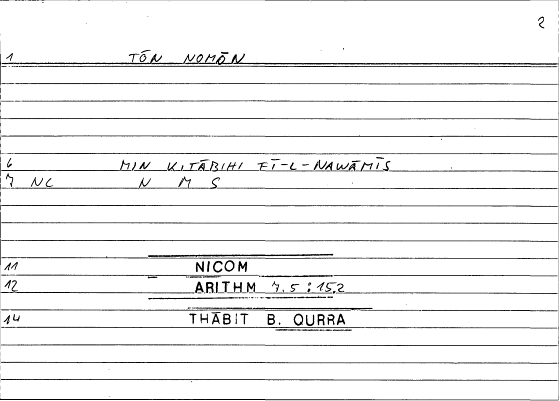 2
1 TŌN NOMŌN
6 MIN KITĀBIHI FĪ-L-NAWĀMĪS
7 NC N M S
11 NICOM
12 ARITHM 7.5 : 15.2
14 THĀBIT B. QURRA